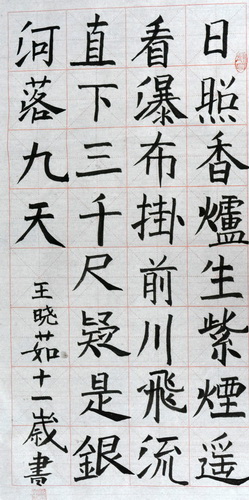 日照香爐生紫煙遥
看瀑布掛前川飛流
直下三千尺疑是銀
河落九天
王晓茹十一歲書